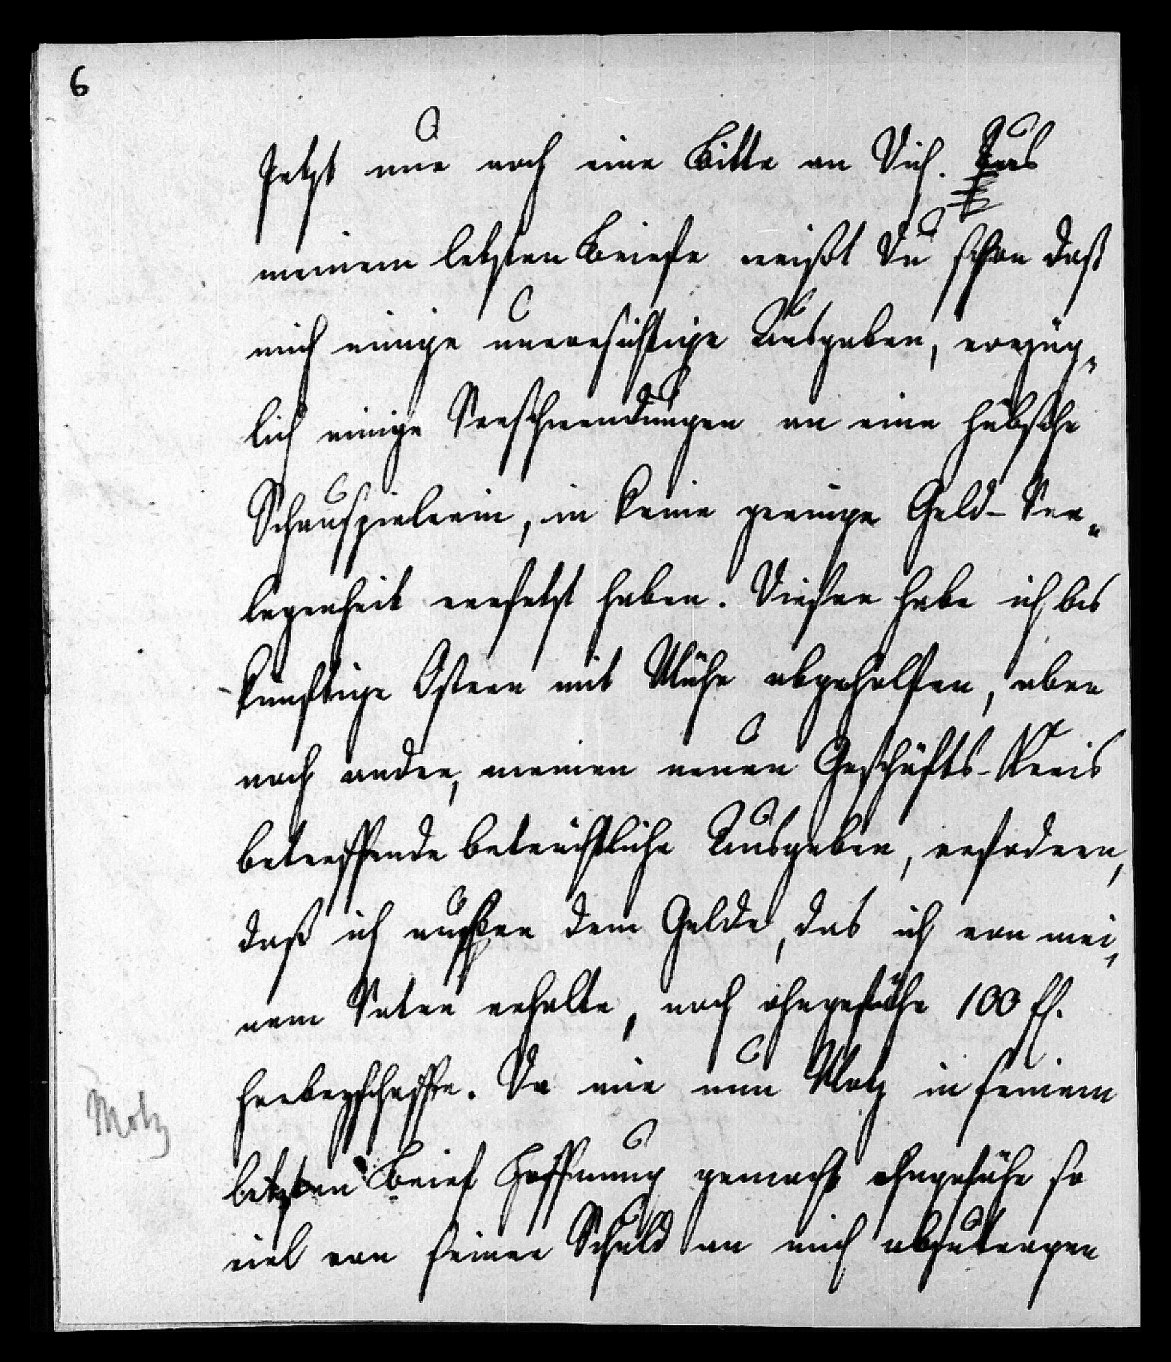 6
Jetzt nur noch eine Bitte an Dich. Aus
meinem letzten Briefe weißt Du schon daß
mich einige unvorsichtige Ausgaben, vorzüg„
lich einige Verschwendungen an eine hübsche
Schauspielerin, in keine geringe Geld-Ver„
legenheit versetzt haben. Dieser habe ich bis
künftige Ostern mit Mühe abgeholfen, aber
noch andre, meinen neuen Geschäfts-Kreis
betreffende beträchtliche Ausgaben, erfodern,
daß ich außer dem Gelde, das ich von mei„
nem Vater erhalte, noch ohngefähr 100 fl.
herbeyschaffe. Da mir nun Motz in seinem
Motz
letzten Brief Hoffnung gemacht ohngefähr so
viel von seiner Schuld an mich abzutragen